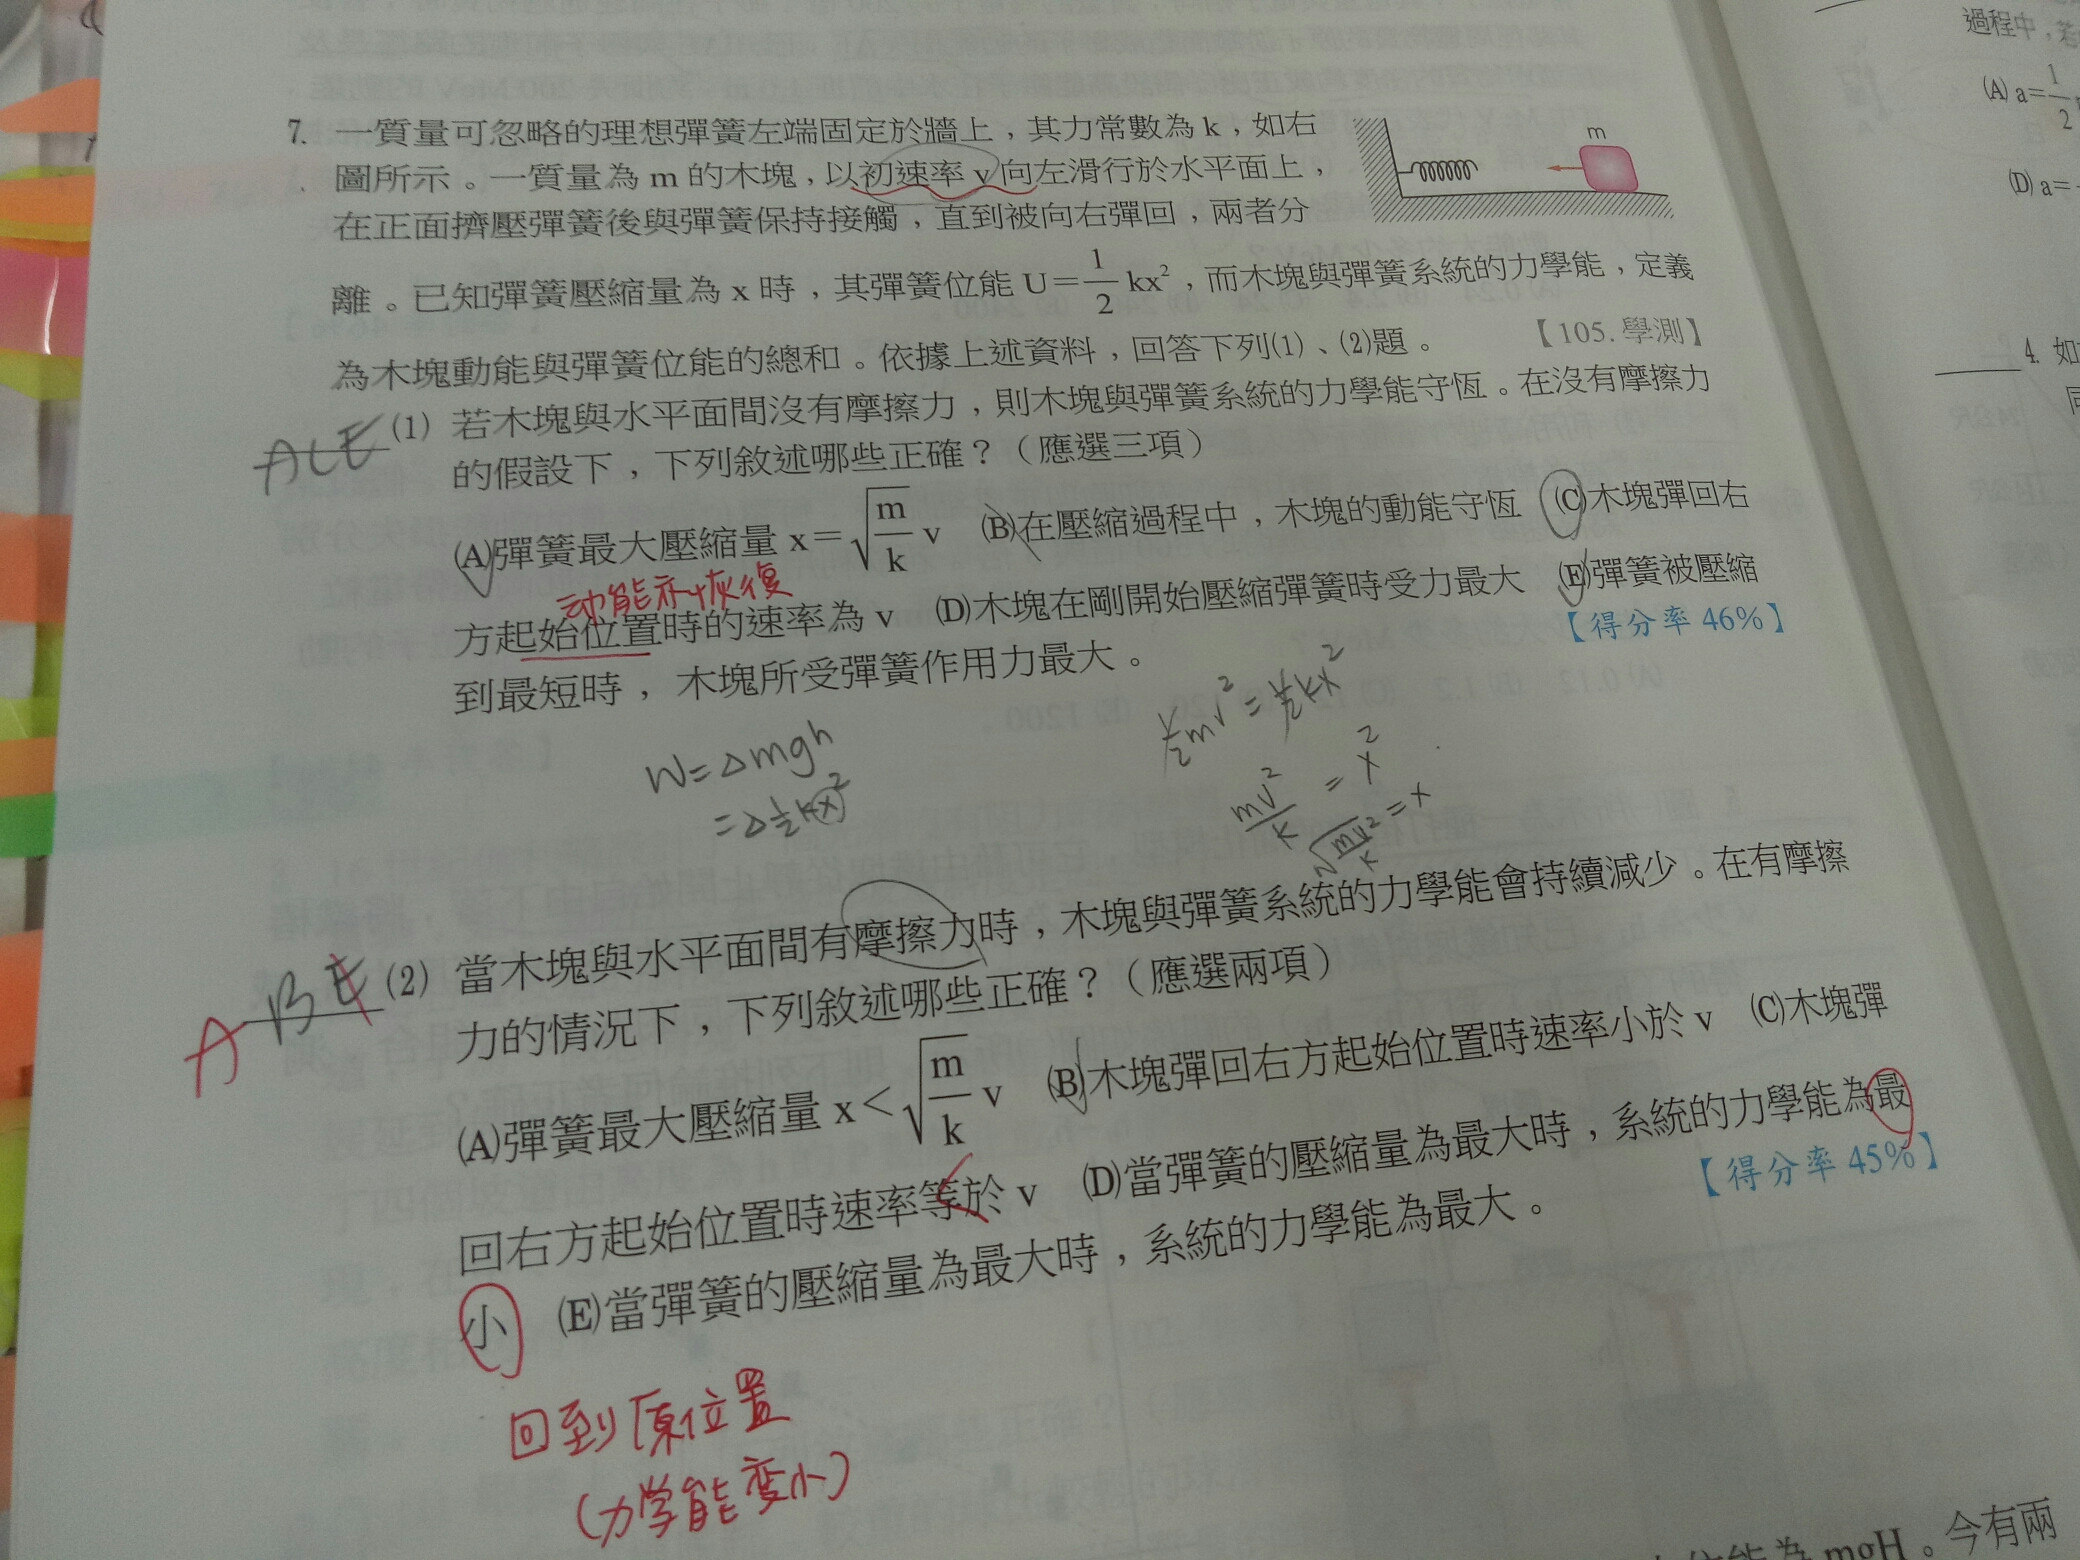 7. 一質量可忽略的理想彈簧左端固定於牆上，其力常數為 k，如右
圖所示。一質量為 m 的木塊，以初速率 v 向左滑行於水平面上，
在正面擠壓彈簧後與彈簧保持接觸，直到被向右彈回，兩者分
離。已知彈簧壓縮量為 x 時，其彈簧位能 U＝1/2 kx²，而木塊與彈簧系統的力學能，定義
為木塊動能與彈簧位能的總和。依據上述資料，回答下列⑴、⑵題。 【105. 學測】
m
ACE
(1) 若木塊與水平面間沒有摩擦力，則木塊與彈簧系統的力學能守恆。在沒有摩擦力
的假設下，下列敘述哪些正確？（應選三項）
(A)彈簧最大壓縮量 x＝√(m/k) v (B)在壓縮過程中，木塊的動能守恆 (C)木塊彈回右
动能亦恢復
方起始位置時的速率為 v (D)木塊在剛開始壓縮彈簧時受力最大 (E)彈簧被壓縮
到最短時，木塊所受彈簧作用力最大。 【得分率 46%】
W=△mgh
=△½kx²
½mv²=½kx²
mv²/k = x²
√(mv²/k) = x
A BE
(2) 當木塊與水平面間有摩擦力時，木塊與彈簧系統的力學能會持續減少。在有摩擦
力的情況下，下列敘述哪些正確？（應選兩項）
(A)彈簧最大壓縮量 x＜√(m/k) v (B)木塊彈回右方起始位置時速率小於 v (C)木塊彈
回右方起始位置時速率等於 v (D)當彈簧的壓縮量為最大時，系統的力學能為最
<
小 (E)當彈簧的壓縮量為最大時，系統的力學能為最大。 【得分率 45%】
回到原位置
(力学能变小)
過程中，若
(A) a＝1/2
(D) a＝
4. 如
同
位能為 mgH。今有兩